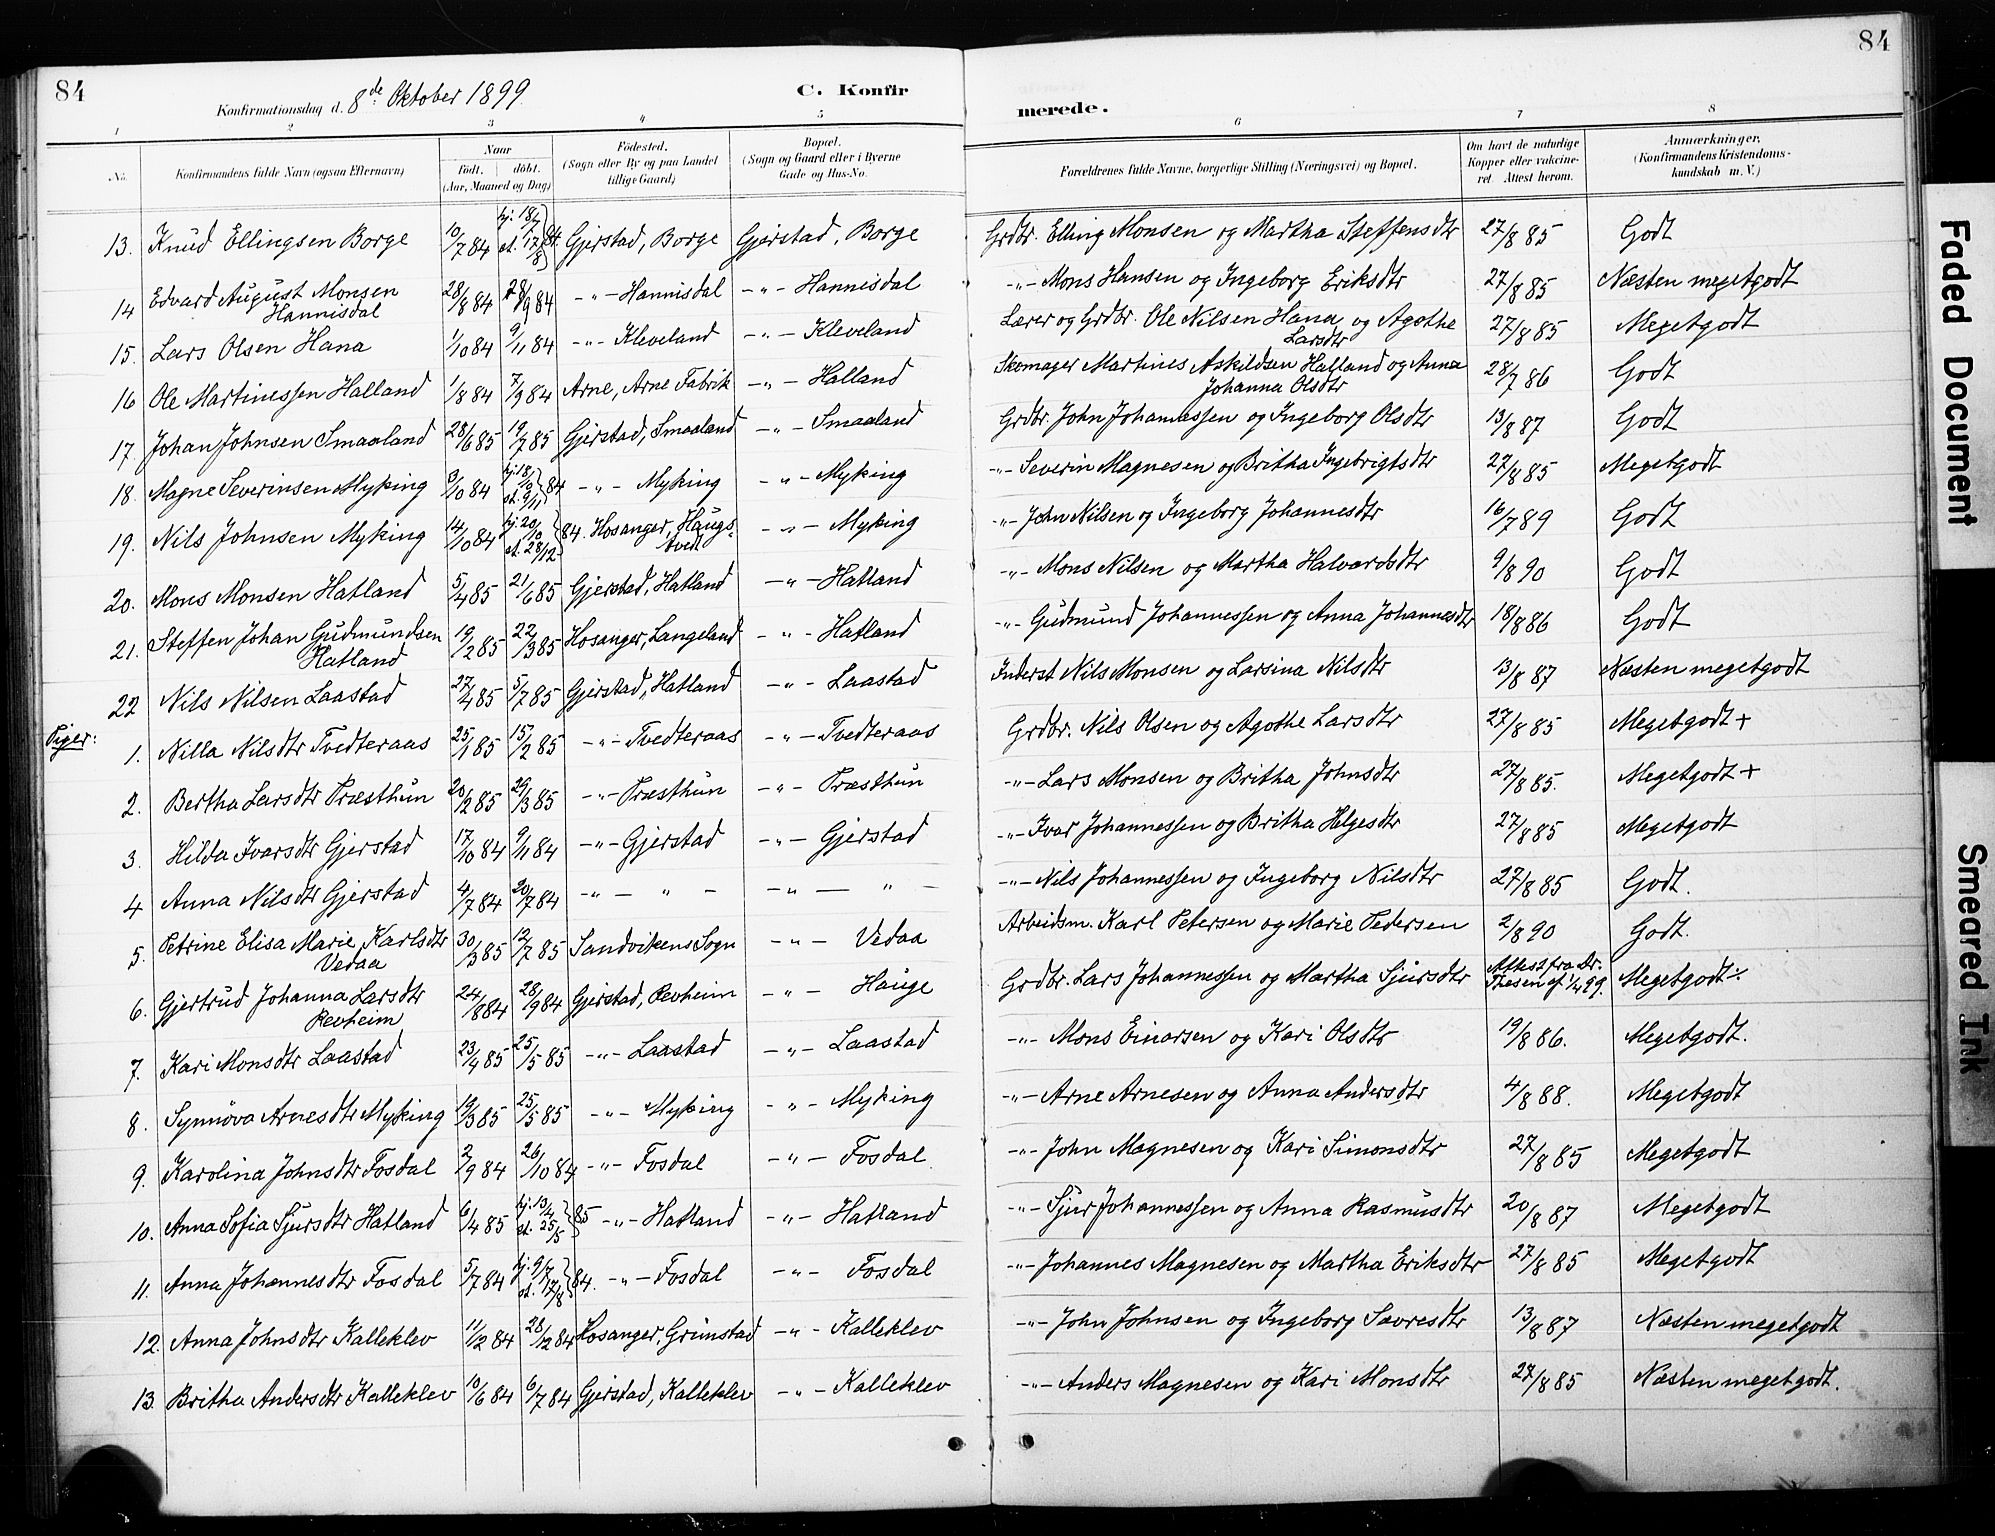 84
84
Konfirmationsdag d. 8de Oktober 1899.
C. Konfir
merede.
1 2 3 4 5 6 7 8
No.
Konfirmandens fulde Navn (ogsaa Efternavn)
Naar
Födt. döbt.
(Aar, Maaned og Dag)
Födested.
(Sogn eller By og paa Landet
tillige Gaard)
Bopæl.
(Sogn og Gaard eller i Byerne
Gade og Hus-No.
Forældrenes fulde Navne, borgerlige Stilling (Næringsvei) og Bopæl.
Om havt de naturlige
Kopper eller vakcine-
ret. Attest herom.
Anmærkninger.
(Konfirmandens Kristendoms-
kundskab m. V.)
13. Knud Ellingsen Borge 10/7 84 hj. 18/7 st. 17/8 84. Gjerstad, Borge Gjerstad, Borge Grdbr. Elling Monsen og Martha Steffensdtr 27/8 85 Godt
14 Edvard August Monsen 28/8 84 28/9 84 -"- Hannisdal -"- Hannisdal -"- Mons Hansen og Ingeborg Eriksdtr 27/8 85 Næsten megetgodt
Hannisdal
15. Lars Olsen Hana 1/10 84 9/11 84 -"- Kleveland -"- Kleveland Lærer og Grdbr. Ole Nilsen Hana og Agothe 27/8 85 Megetgodt
Larsdtr
16 Ole Martinessen Halland 1/8 84 7/9 84 Arne, Arne Fabrik -"- Halland Skomager Martines Askildsen Halland og Anna 28/7 86 Godt
Johanna Olsdtr
17. Johan Johnsen Smaaland 28/6 85 19/7 85 Gjerstad, Smaaland -"- Smaaland Grdbr. John Johannessen og Ingeborg Olsdtr 13/8 87 Godt
18. Magne Severinsen Myking 3/10 84 hj. 18/10 st. 9/11 84 -"- Myking -"- Myking -"- Severin Magnesen og Britha Ingebrigtsdtr 27/8 85 Megetgodt
19. Nils Johnsen Myking 14/10 84 hj. 20/10 st. 28/12 84. Hosanger, Haugs- -"- Myking -"- John Nilsen og Ingeborg Johannesdtr 16/7 89 Godt
tvedt
20. Mons Monsen Hatland 5/4 85 21/6 85 Gjerstad, Hatland -"- Hatland -"- Mons Nilsen og Martha Halvardsdtr 9/8 90 Godt
21. Steffen Johan Gudmundsen 19/2 85 22/3 85 Hosanger, Langeland -"- Hatland -"- Gudmund Johannessen og Anna Johannesdtr 18/8 86 Godt
Hatland
22 Nils Nilsen Laastad 27/4 85 5/7 85 Gjerstad, Hatland -"- Laastad Inderst Nils Monsen og Larsina Nilsdtr 13/8 87 Næsten megetgodt
Piger:
1. Nilla Nilsdtr Tvedteraas 25/1 85 15/2 85 -"- Tvedteraas -"- Tvedteraas Grdbr. Nils Olsen og Agothe Larsdtr 27/8 85 Megetgodt +
2. Bertha Larsdtr Præsthun 20/2 85 29/3 85 -"- Præsthun -"- Præsthun -"- Lars Monsen og Britha Johnsdtr 27/8 85. Megetgodt +
3. Hilda Ivarsdtr Gjerstad 17/10 84 9/11 84 -"- Gjerstad -"- Gjerstad -"- Ivar Johannessen og Britha Helgesdtr 27/8 85 Megetgodt
4 Anna Nilsdtr Gjerstad 4/7 84 20/7 84 -"- " - -"- " - -"- Nils Johannessen og Ingeborg Nilsdtr 27/8 85 Godt.
5. Petrine Elisa Marie Karlsdtr 30/3 85 12/7 85 Sandvikens Sogn -"- Vedaa Arbeidsm. Karl Petersen og Marie Pedersen 2/8 90 Godt.
Vedaa
6. Gjertrud Johanna Larsdtr 24/8 84 28/9 84 Gjerstad, Revheim -"- Hauge Grdbr. Lars Johannessen og Martha Sjursdtr Attest fra Dr. Thesen af 1/4 99. Megetgodt
Revheim
7. Kari Monsdtr Laastad 23/4 85 25/5 85 -"- Laastad -"- Laastad -"- Mons Einarsen og Kari Olsdtr 19/8 86. Megetgodt.
8. Synnöva Arnesdtr Myking 19/3 85 25/5 85 -"- Myking -"- Myking -"- Arne Arnesen og Anna Andersdtr 4/8 88. Megetgodt
9. Karolina Johnsdtr Fosdal 2/9 84 26/10 84 -"- Fosdal -"- Fosdal -"- John Magnesen og Kari Simonsdtr 27/8 85 Megetgodt
10. Anna Sofia Sjursdtr Hatland 6/4 85 hj. 13/4 st. 25/5 85 -"- Hatland -"- Hatland -"- Sjur Johannessen og Anna Rasmusdtr 20/8 87 Megetgodt
11. Anna Johannesdtr Fosdal 5/7 84 hj. 9/7 st. 17/8 84. -"- Fosdal -"- Fosdal -"- Johannes Magnesen og Martha Eriksdtr 27/8 85 Megetgodt
12. Anna Johnsdtr Kalleklev 11/12 84 28/12 84 Hosanger, Grimstad -"- Kalleklev -"- John Johnsen og Ingeborg Savresdtr 13/8 87 Næsten megetgodt
13. Britha Andersdtr Kalleklev 10/6 84 6/7 84 Gjerstad, Kalleklev -"- Kalleklev -"- Anders Magnesen og Kari Monsdtr 27/8 85 Næsten megetgodt.
Faded Document
Smeared Ink